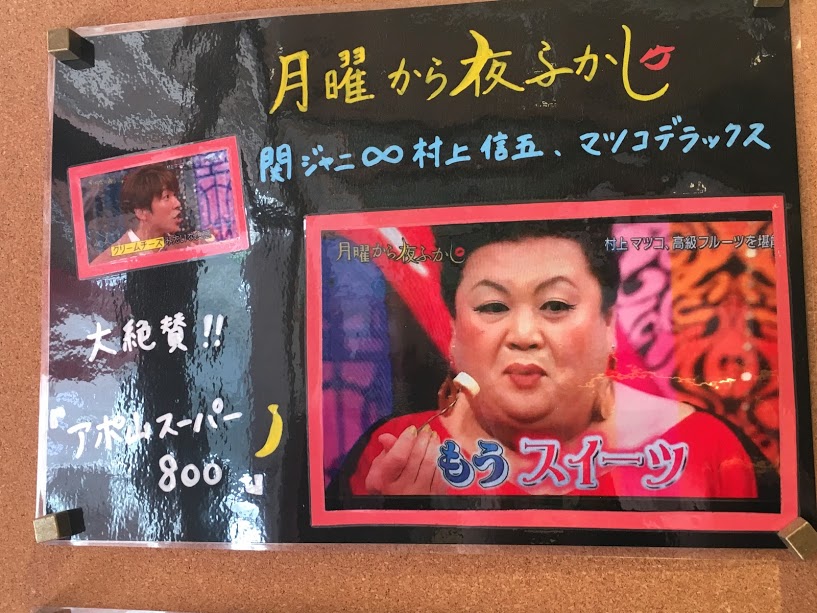 月曜から夜ふかし
関ジャニ∞村上信五、マツコデラックス
クリームチーズ
月曜から夜ふかし
村上 マツコ、高級フルーツを堪
もう スイーツ
大絶賛!!
『アポ山スーパー
800』